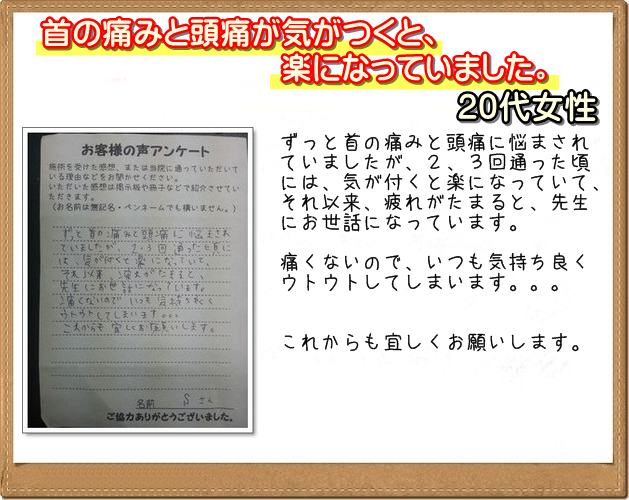 首の痛みと頭痛が気がつくと、
楽になっていました。
20代女性
お客様の声アンケート
施術を受けた感想、または当院に通っていただいて
いる理由などをお聞かせください。
いただいた感想は掲示板や冊子などで紹介させてい
ただきます。
(お名前は無記名・ペンネームでも構いません。)
ずっと首の痛みと頭痛に悩まされ
ていましたが、2、3回通った頃に
は、気が付くと楽になっていて、
それ以来、疲れがたまると、
先生にお世話になっています。
痛くないので いつも気持ち良く
ウトウトしてしまいます。。。
これからも宜しくお願いします。
名前 S さん
ご協力ありがとうございました。
ずっと首の痛みと頭痛に悩まされ
ていましたが、２、３回通った頃
には、気が付くと楽になっていて、
それ以来、疲れがたまると、先生
にお世話になっています。
痛くないので、いつも気持ち良く
ウトウトしてしまいます。。。
これからも宜しくお願いします。